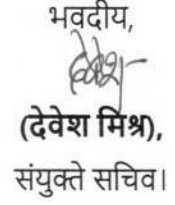 भवदीय,
देवेश
(देवेश मिश्र),
संयुक्ते सचिव।